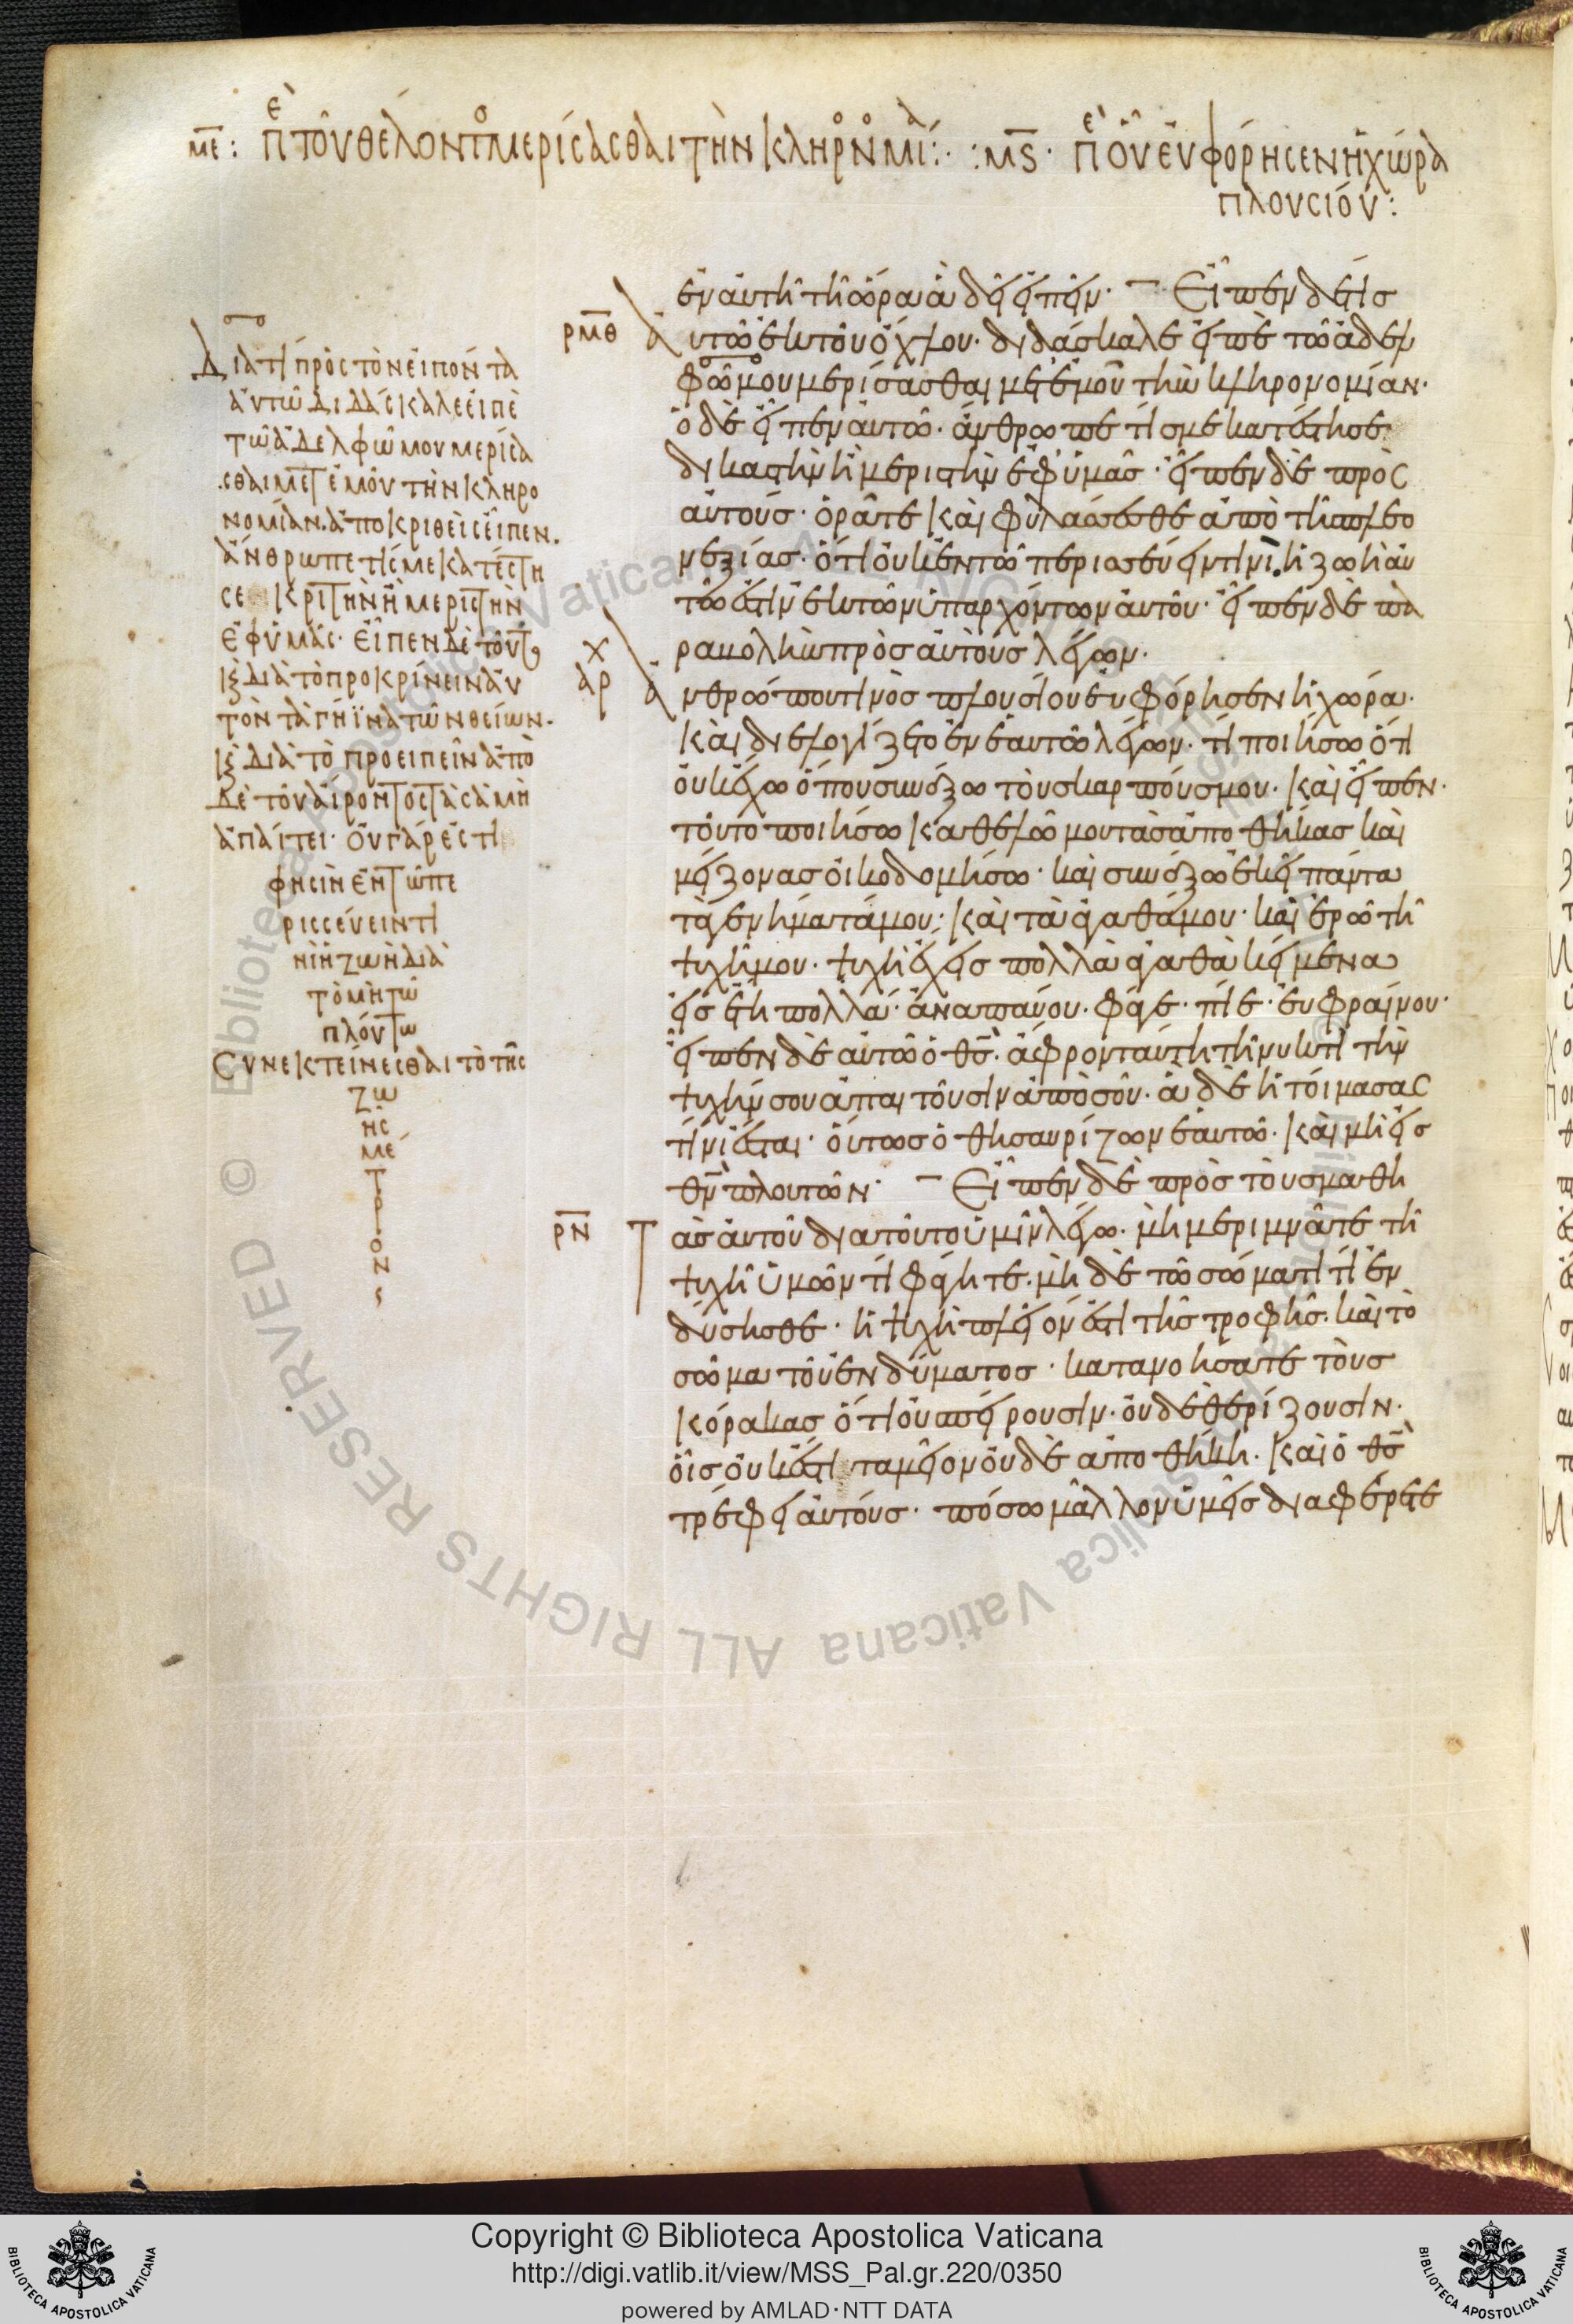 με: πε τοῦ θέλοντο μερίσασθαι τὴν κληρονομία: · : μς · πε οὗ εὐφόρησεν ἡ χώρα
πλουσίου:
ἐν αὐτῆ τῆ ὥρα ἃ δεῖ εἰπεῖν· Εἶπεν δέ τισ
ρμθ αὐτῶ ἐκ τοῦ ὄχλου· διδάσκαλε εἰπὲ τῶ ἀδελ
φῶ μου μερίσασθαι μετ' ἐμοῦ τὴν κληρονομίαν·
ὁ δὲ εἶπεν αὐτῶ· ἄνθρωπε τίσ με κατέστησε
δικαστὴν ἢ μεριστὴν ἐφ' ὑμᾶσ· εἶπεν δὲ πρὸς
αὐτούσ· ὁρᾶτε καὶ φυλάσσεσθε ἀπὸ τῆσ πλεο
νεξίασ· ὅτι οὐκ ἐν τῶ περισσεύειν τινὶ ἡ ζωὴ αὐ
τῶ ἐστὶν ἐκ τῶν ὑπαρχόντων αὐτοῦ· εἶπεν δὲ πα
χ ραβολὴν πρὸσ αὐτοὺσ λέγων·
αρ ἀνθρώπου τινὸσ πλουσίου εὐφόρησεν ἡ χώρα·
καὶ διελογίζετο ἐν ἑαυτῶ λέγων· τί ποιήσω ὅτι
οὐκ ἔχω ὅπου συνάξω τοὺσ καρπούσ μου· καὶ εἶπεν·
τοῦτο ποιήσω καθελῶ μου τὰσ ἀποθήκασ καὶ
μείζονασ οἰκοδομήσω· καὶ συνάξω ἐκεῖ πάντα
τὰ γενήματά μου· καὶ τὰ ἀγαθά μου· καὶ ἐρῶ τῆ
ψυχῆ μου· ψυχὴ ἔχεισ πολλὰ ἀγαθὰ κείμενα
εἰσ ἔτη πολλά· ἀναπαύου· φάγε· πίε· εὐφραίνου·
εἶπεν δὲ αὐτῶ ὁ θσ· ἄφρον ταύτη τῆ νυκτὶ τὴν
ψυχήν σου ἀπαιτοῦσιν ἀπὸ σοῦ· ἃ δὲ ἡτοίμασας
τίνι ἔσται· οὕτωσ ὁ θησαυρίζων ἑαυτῶ· καὶ μὴ εἰσ
θν πλουτῶν· Εἶπεν δὲ πρὸσ τοὺσ μαθη
ρν Τὰσ αὐτοῦ διατοῦτο ὑμῖν λέγω· μὴ μεριμνᾶτε τῆ
ψυχῆ ὑμῶν τί φάγητε· μὴ δὲ τῶ σώματι τί ἐν
δύσησθε· ἡ ψυχὴ πλεῖον ἐστὶ τῆσ τροφῆσ· καὶ τὸ
σῶμα τοῦ ἐνδύματοσ· κατανοήσατε τοὺσ
κόρακασ ὅτι οὐ σπείρουσιν· οὐδὲ θερίζουσιν·
οἷσ οὐκ ἔστι ταμεῖον οὐδὲ ἀποθήκη· καὶ ὁ θσ
τρέφει αὐτούσ· πόσω μᾶλλον ὑμεῖσ διαφέρετε
Διατί πρὸς τὸν εἰπόντα
αὐτῶ διδάσκαλε εἰπὲ
τῶ ἀδελφῶ μου μερίσα
σθαι μετ ἐμοῦ τὴν κληρο
νομίαν· ἀποκριθεὶς εἶπεν·
ἄνθρωπε τίς με κατέστη
σε κριτὴν ἢ μεριστὴν
ἐφ ὑμᾶς· εἶπεν δὲ τοῦτο
κξ διὰ τὸ προκρίνειν αὐ
τὸν τὰ γήϊνα τῶν θείων·
κξ διὰ τὸ προειπεῖν ἀπὸ
δὲ τοῦ αἴροντος τὰ σὰ μὴ
ἀπαίτει· οὐ γάρ ἐστι
φησιν ἐν τῶ πε
ρισσεύειν τι
νὶ ἡ ζωὴ διὰ
τὸ μὴ τῶ
πλούτω
Συνεκτείνεσθαι τὸ τῆς
ζω
ῆς
μέ
τ
ρ
ο
ν
Copyright © Biblioteca Apostolica Vaticana
http://digi.vatlib.it/view/MSS_Pal.gr.220/0350
powered by AMLAD·NTT DATA
BIBLIOTECA APOSTOLICA VATICANA
BIBLIOTECA APOSTOLICA VATICANA
© Biblioteca Apostolica Vaticana ALL RIGHTS RESERVED